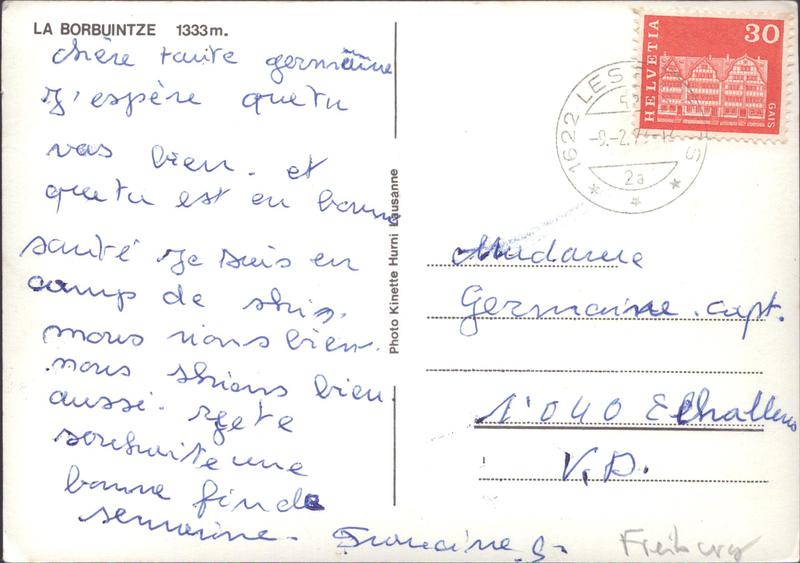 LA BORBUINTZE 1333m.
chère tante germaine
J'espère que tu
vas bien. et
que tu est en bonne
santé je suis en
camp de skis.
nous rions bien.
nous skions bien
aussi. je te
souhaite une
bonne fin de
semaine. Francine. G.
Photo Kinette Hurni Lausanne
HELVETIA
30
GAIS
1622 LES
-9.-2.
2a
Madame
Germaine. capt.
1'040 Echallens
V.D.
Freiburg